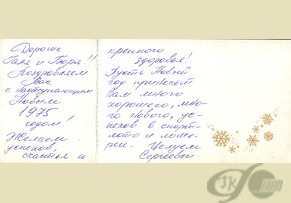 Дорогие
Галя и Боря!!
Поздравляем
Вас
с наступающим
Новым
1975
годом!
Желаем
успехов,
счастья и
крепкого
здоровья!
Пусть Новый
год принесёт
Вам много
хорошего, мно-
го нового, ус-
пехов в спорт-
лото и лоте-
рее. Целуем
Сергеевы